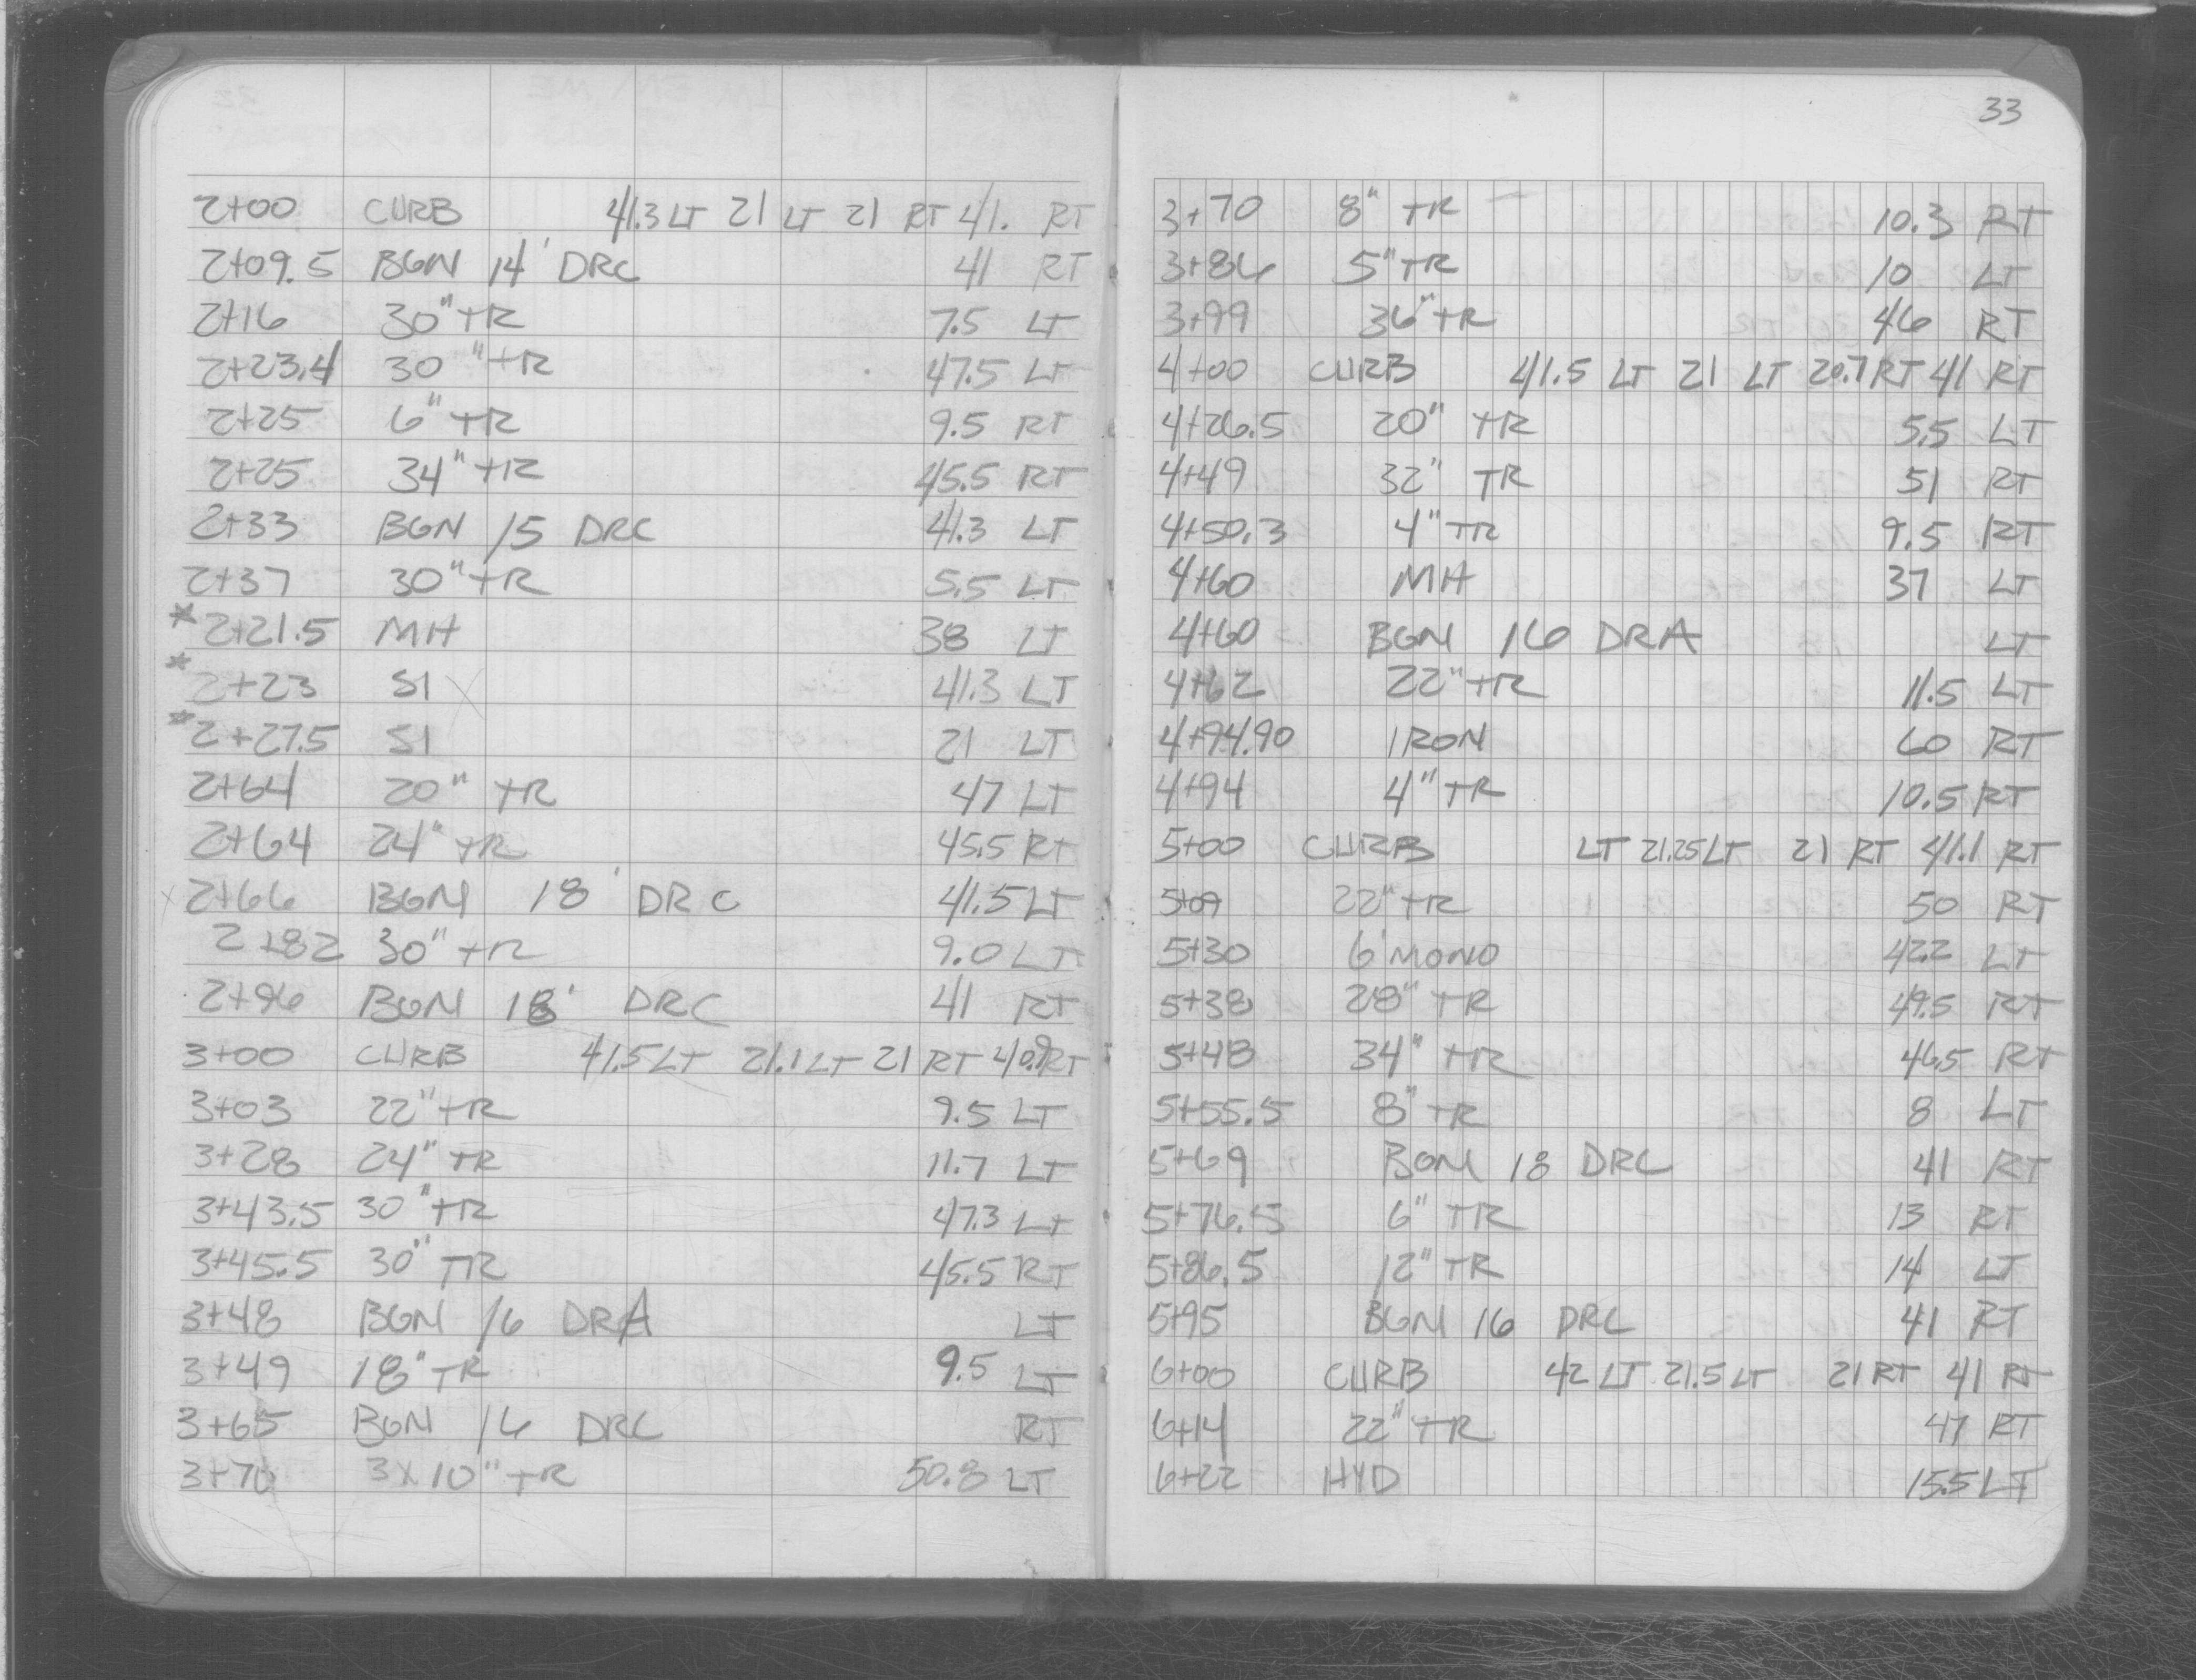 2+00 CURB 41.3 LT 21 LT 21 RT 41. RT
2+09.5 BGN 14' DRC 41 RT
2+16 30" TR 7.5 LT
2+23.4 30" TR 47.5 LT
2+25 6" TR 9.5 RT
2+25 34" TR 45.5 RT
2+33 BGN 15 DRC 41.3 LT
2+37 30" TR 5.5 LT
* 2+21.5 MH 38 LT
* 2+23 SI 41.3 LT
* 2+27.5 SI 21 LT
2+64 20" TR 47 LT
2+64 24" TR 45.5 RT
2+66 BGN 18' DRC 41.5 LT
2+82 30" TR 9.0 LT
2+96 BGN 18' DRC 41 RT
3+00 CURB 41.5 LT 21.1 LT 21 RT 40.9 RT
3+03 22" TR 9.5 LT
3+28 24" TR 11.7 LT
3+43.5 30" TR 47.3 LT
3+45.5 30" TR 45.5 RT
3+48 BGN 16 DRA LT
3+49 18" TR 9.5 LT
3+65 BGN 16 DRC RT
3+70 3x10" TR 50.8 LT
33
3+70 8" TR 10.3 RT
3+86 5" TR 10 LT
3+99 36" TR 46 RT
4+00 CURB 41.5 LT 21 LT 20.7 RT 41 RT
4+26.5 20" TR 5.5 LT
4+49 32" TR 51 RT
4+50.3 4" TR 9.5 RT
4+60 MH 37 LT
4+60 BGN 16 DRA LT
4+62 22" TR 11.5 LT
4+94.90 IRON 60 RT
4+94 4" TR 10.5 RT
5+00 CURB LT 21.25 LT 21 RT 41.1 RT
5+09 22" TR 50 RT
5+30 6' MONO 42.2 LT
5+38 28" TR 49.5 RT
5+48 34" TR 46.5 RT
5+55.5 8" TR 8 LT
5+69 BGN 18 DRC 41 RT
5+76.5 6" TR 13 RT
5+86.5 12" TR 14 LT
5+95 BGN 16 DRC 41 RT
6+00 CURB 42 LT 21.5 LT 21 RT 41 RT
6+14 22" TR 47 RT
6+22 HYD 15.5 LT